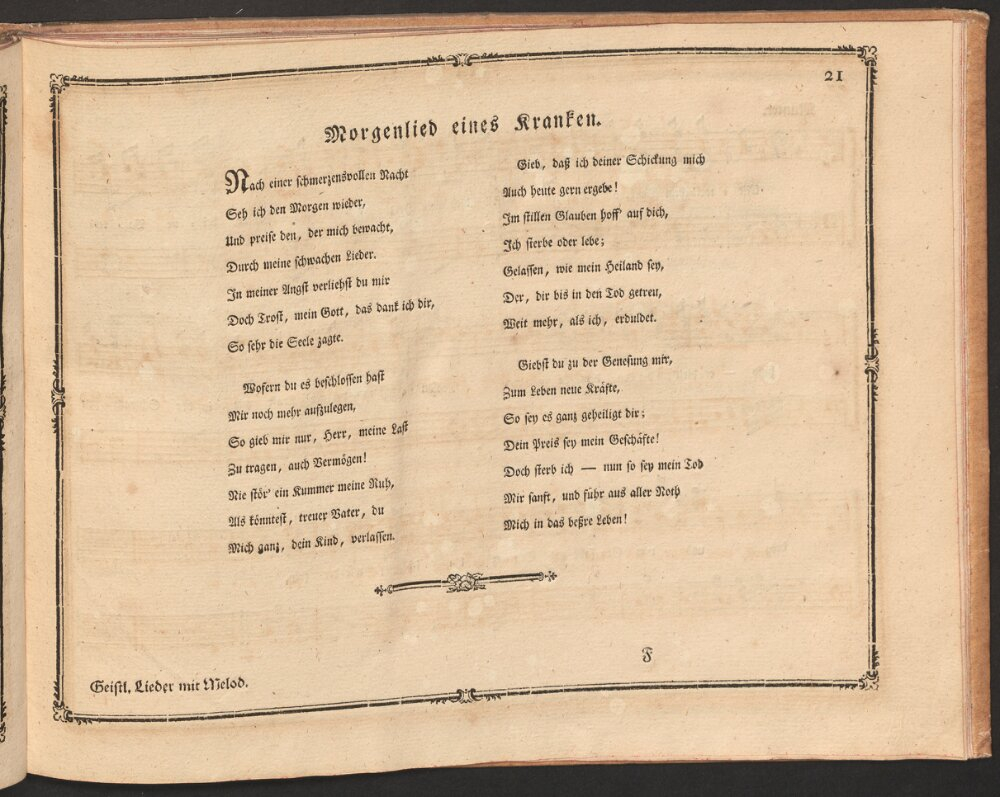 21
Morgenlied eines Kranken.
Nach einer schmerzensvollen Nacht
Seh ich den Morgen wieder,
Und preise den, der mich bewacht,
Durch meine schwachen Lieder.
In meiner Angst verliehst du mir
Doch Trost, mein Gott, das dank ich dir,
So sehr die Seele zagte.
Wofern du es beschlossen hast
Mir noch mehr aufzulegen,
So gieb mir nur, Herr, meine Last
Zu tragen, auch Vermögen!
Nie stör' ein Kummer meine Ruh,
Als könntest, treuer Vater, du
Mich ganz, dein Kind, verlassen.
Gieb, daß ich deiner Schickung mich
Auch heute gern ergebe!
Im stillen Glauben hoff' auf dich,
Ich sterbe oder lebe;
Gelassen, wie mein Heiland sey,
Der, dir bis in den Tod getreu,
Weit mehr, als ich, erduldet.
Giebst du zu der Genesung mir,
Zum Leben neue Kräfte,
So sey es ganz geheiligt dir;
Dein Preis sey mein Geschäfte!
Doch sterb ich — nun so sey mein Tod
Mir sanft, und führ aus aller Noth
Mich in das beßre Leben!
F
Geistl. Lieder mit Melod.